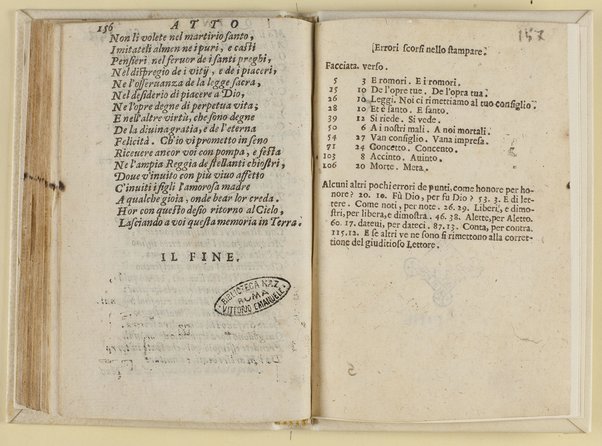 156 ATTO
Non li volete nel martirio santo,
Imitateli almen ne i puri, e casti
Pensieri nel feruor de i santi preghi,
Nel dispregio de i vitij, e de i piaceri,
Ne l'osseruanza de la legge sacra,
Nel desiderio di piacere a Dio,
Ne l'opre degne di perpetua vita;
E nell'altre virtù, che sono degne
De la diuina gratia, e de l'eterna
Felicità. Ch'io vi prometto in seno
Riceuere ancor voi con pompa, e festa
Ne l'ampia Reggia de stellanti chiostri,
Doue v'inuito con più viuo affetto
C'inuiti i figli l'amorosa madre
A qualche gioia, onde bear lor creda.
Hor con questo desio ritorno al Cielo,
Lasciando a voi questa memoria in Terra.
IL FINE.
BIBLIOTECA NAZ.
ROMA
VITTORIO EMANUELE
157
Errori scorsi nello stampare.
Facciata. verso.
5 3 E romori. E i romori.
25 10 De l'opre tue. De l'opra tua.
26 10 Leggi. Noi ci rimettiamo al tuo consiglio.
28 10 Et è santo. E santo.
39 12 Si riede. Si vede.
50 6 A i nostri mali. A noi mortali.
54 27 Van consiglio. Vana impresa.
71 24 Concetto. Concento.
103 8 Accinto. Auinto.
106 20 Morte. Meta.
Alcuni altri pochi errori de punti, come honore per ho-
nore? 20. 10. Fù Dio, per fu Dio? 53. 3. E di let-
tere. Come noti, per note. 26. 29. Liberi, e dimo-
stri, per libera, e dimostra. 46. 38. Alette, per Aletto.
60. 17. dateni, per dateci. 87. 13. Conta, per contra.
115, 12. E se altri ve ne sono si rimettono alla corret-
tione del giuditioso Lettore.